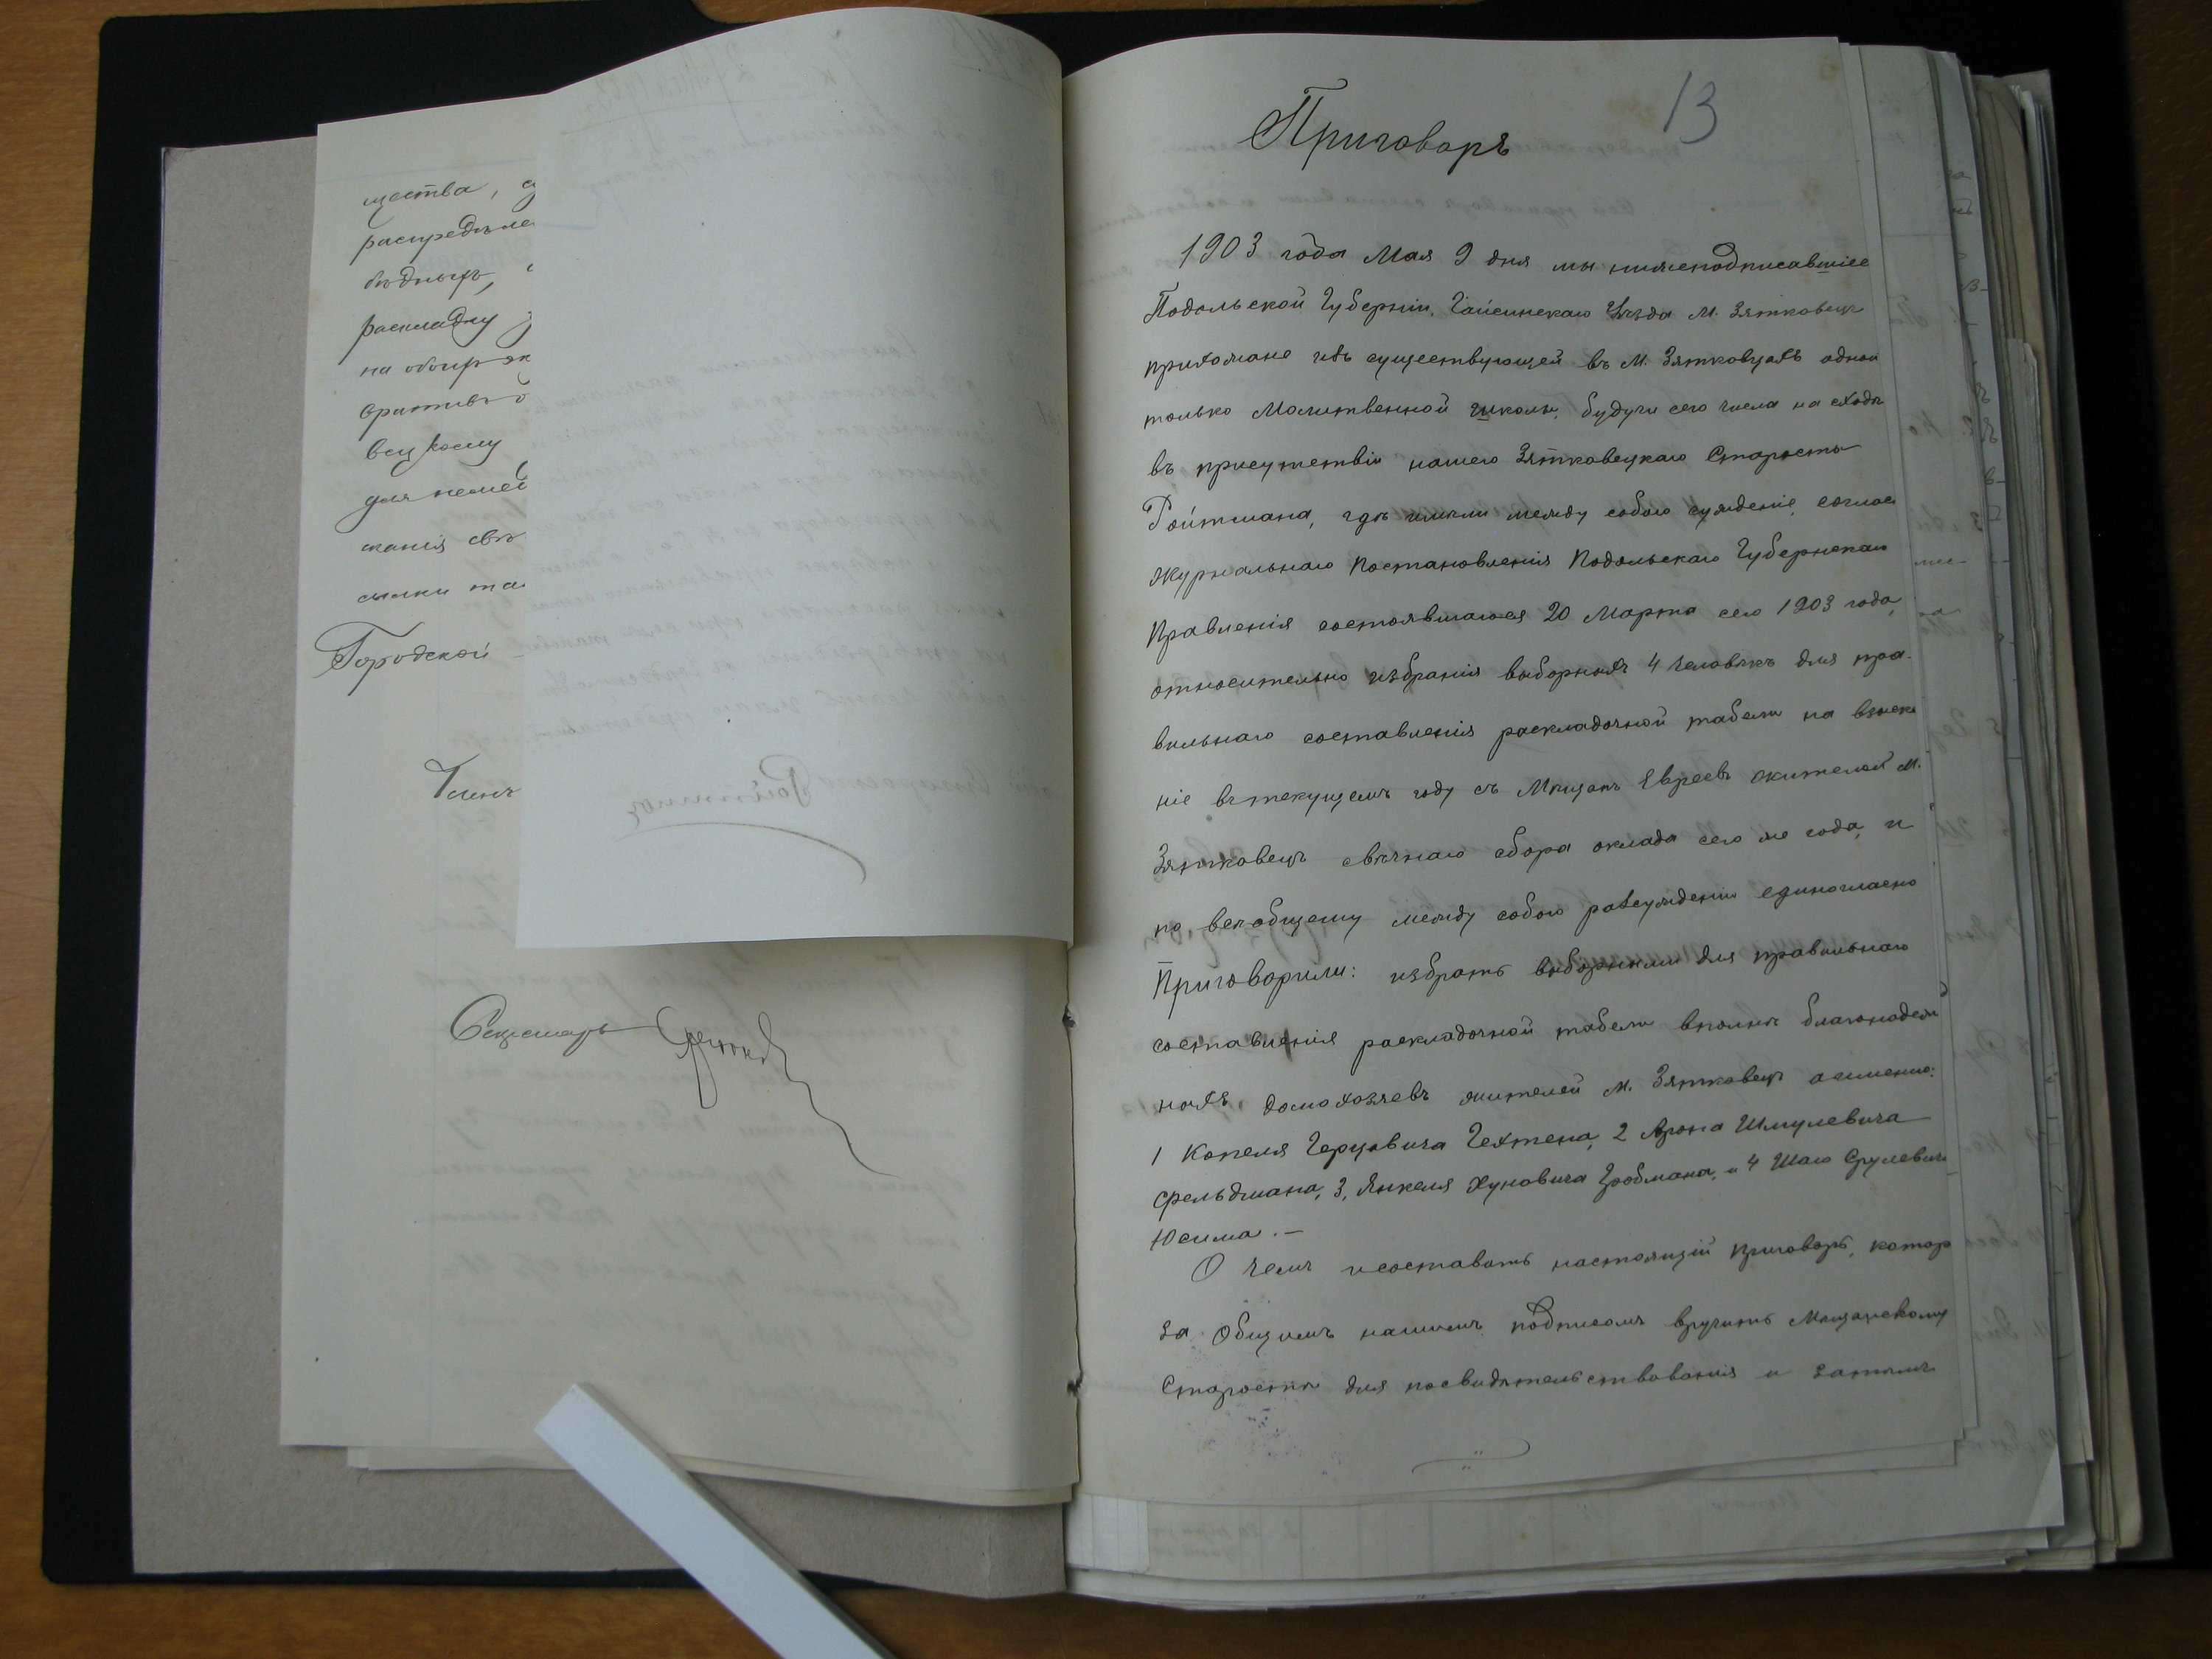 щества, 
распредѣле
бѣдныхъ,
раскладку
на обыр
вецкому
жанія свѣ
сылки та
Городской
Членъ
Секретарь
13
Приговоръ
1903 года Мая 9 дня мы нижеподписавшіес
Подольской Губерніи, Гайсинскаго Уѣзда М. Зятковецъ
прихожане изъ существующей въ М. Зятковцахъ одной
только Молитвенной школы, будучи сего числа на сходѣ
въ присутствіи нашего Зятковецкаго Старосты
Ройтмана, гдѣ имѣли между собою сужденіе, соглас
Журнальнаго Постановленія Подольскаго Губернскаго
Правленія состоявшагося 20 Марта сего 1903 года,
относительно избранія выборныхъ 4 человѣкъ для пра-
вильнаго составленія раскладочной табели на взыска
ніе въ текущемъ году съ Мѣщанъ Евреевъ жителей М.
Зятковецъ свѣчнаго сбора оклада сего же года, и
по всеобщему между собою разсужденіи единогласно
Приговорили: избрать выборными для правильнаго
составленія раскладочной табели вполнѣ благонадеж
ныхъ домохозяевъ жителей М. Зятковецъ а именно:
1 Копеля Герцовича Гехтена, 2 Арона Шмулевича
Фельдмана, 3, Янкеля Хуновича Гробмана, и 4 Шаю Срулевича
Юсима. —
О чемъ и составить настоящій приговоръ, котор
за общимъ нашимъ подписомъ вручить Мѣщанскому
Старостѣ для посвидѣтельствованія и затѣмъ